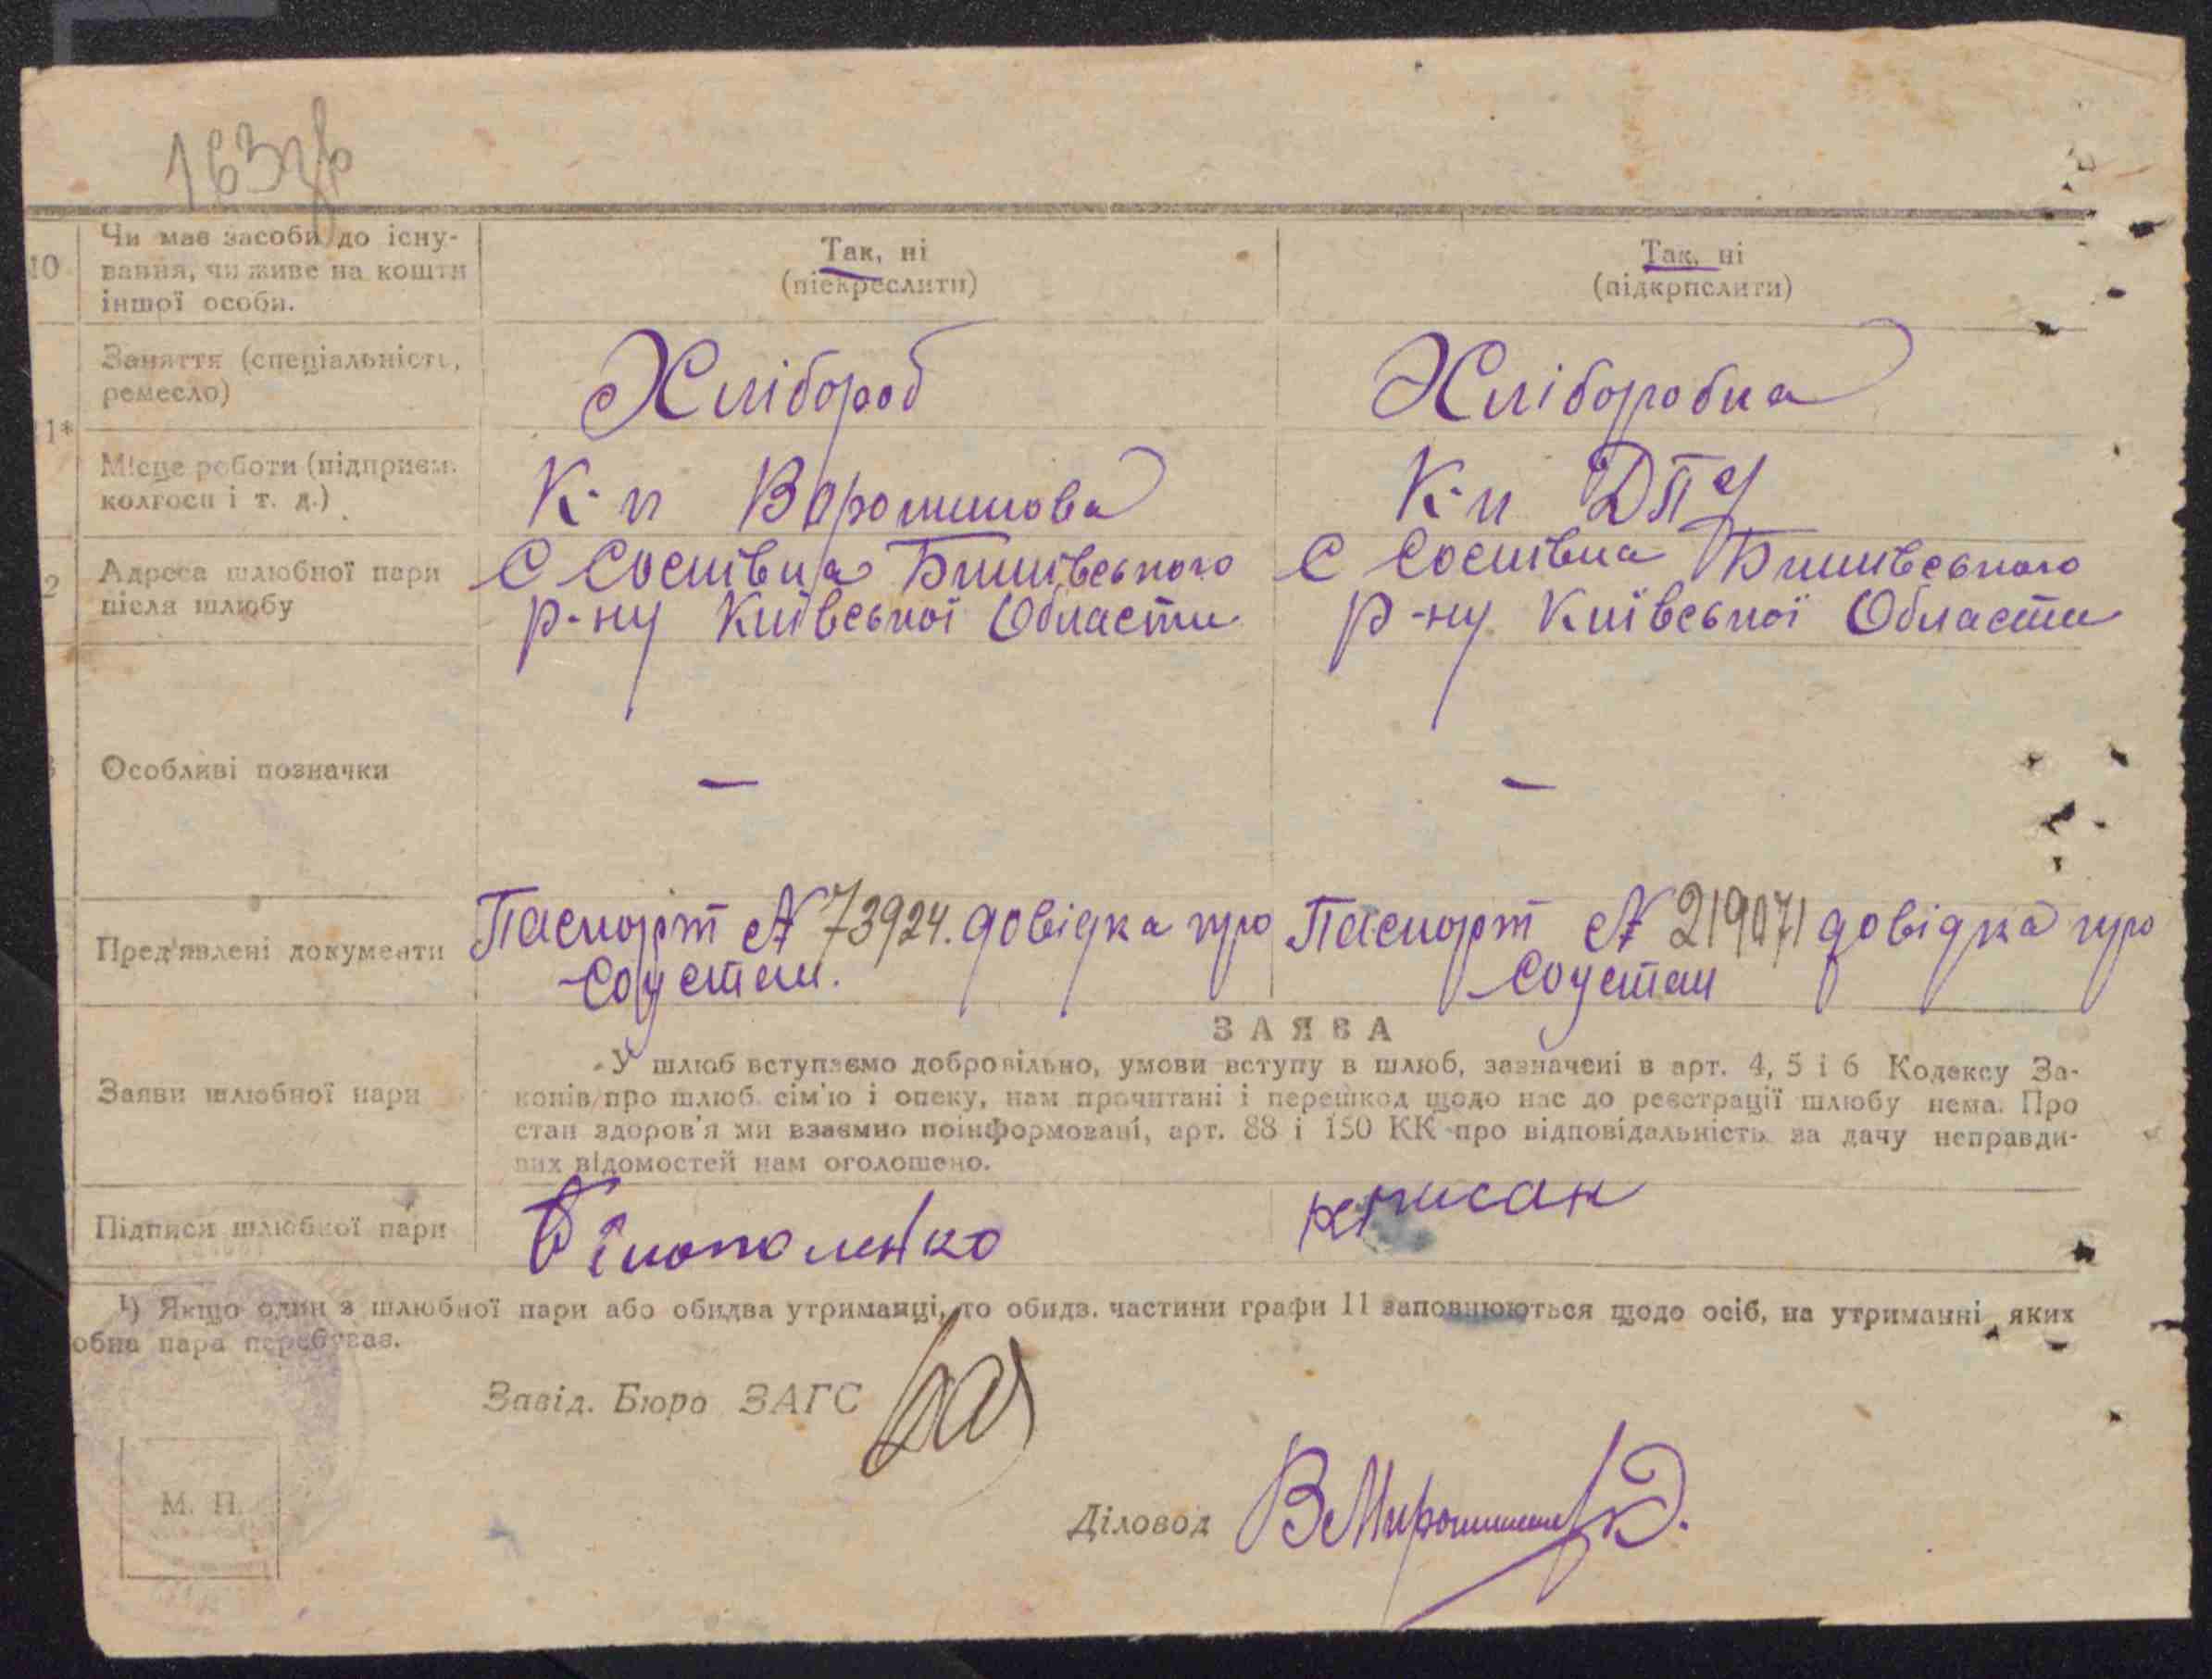 163зв
10 Чи має засоби до існу-
вання, чи живе на кошти
іншої особи.
Так, ні
(піекреслити)
Так, ні
(підкрпслити)
11* Заняття (спеціальність,
ремесло)
Хлібороб
Хліборобка
Місце роботи (підприєм.
колгосп і т. д.)
К-п Ворошилова
К-п ДПУ
2 Адреса шлюбної пари
після шлюбу
С Соснівка Бишівського
р-ну Київської Области
С Соснівка Бишівського
р-ну Київської Области
Особливі позначки
—
—
Пред'явлені документи
Паспорт № 73924. довідка про
Соцстан.
Паспорт № 219071 довідка про
Соцстан
Заяви шлюбної пари
ЗАЯВА
У шлюб вступаємо добровільно, умови вступу в шлюб, зазначені в арт. 4, 5 і 6 Кодексу За-
конів про шлюб. сім'ю і опеку, нам прочитані і перешкод щодо нас до реєстрації шлюбу нема. Про
стан здоров'я ми взаємно поінформовані, арт. 88 і 150 КК про відповідальність за дачу неправди-
вих відомостей нам оголошено.
Підписи шлюбної пари
¹) Якщо один з шлюбної пари або обидва утриманці, то обидв. частини графи 11 заповнюються щодо осіб, на утриманні яких
обна пара перебуває.
Завід. Бюро ЗАГС
Діловод
М. П.